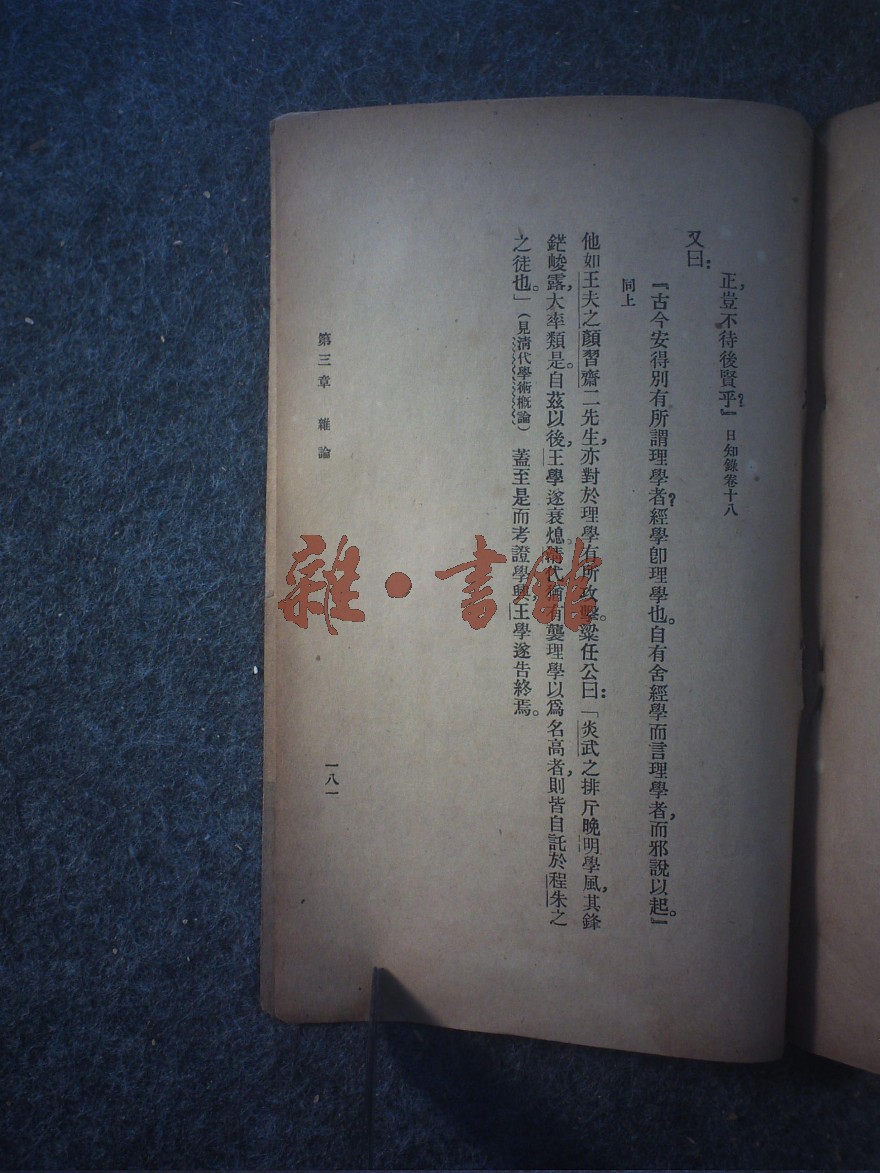 正，豈不待後賢乎？』日知錄卷十八
又曰：
『古今安得別有所謂理學者？經學卽理學也。自有舍經學而言理學者，而邪說以起。』
同上
他如王夫之顏習齋二先生，亦對於理學有所攻擊。梁任公曰：「炎武之排斥晚明學風，其鋒
鋩峻露，大率類是。自茲以後，王學遂衰熄。清代猶有襲理學以爲名高者，則皆自託於程朱之
之徒也。」（見清代學術概論）蓋至是而考證學興，王學遂告終焉。
第三章 雜論
一八一
雜·書館